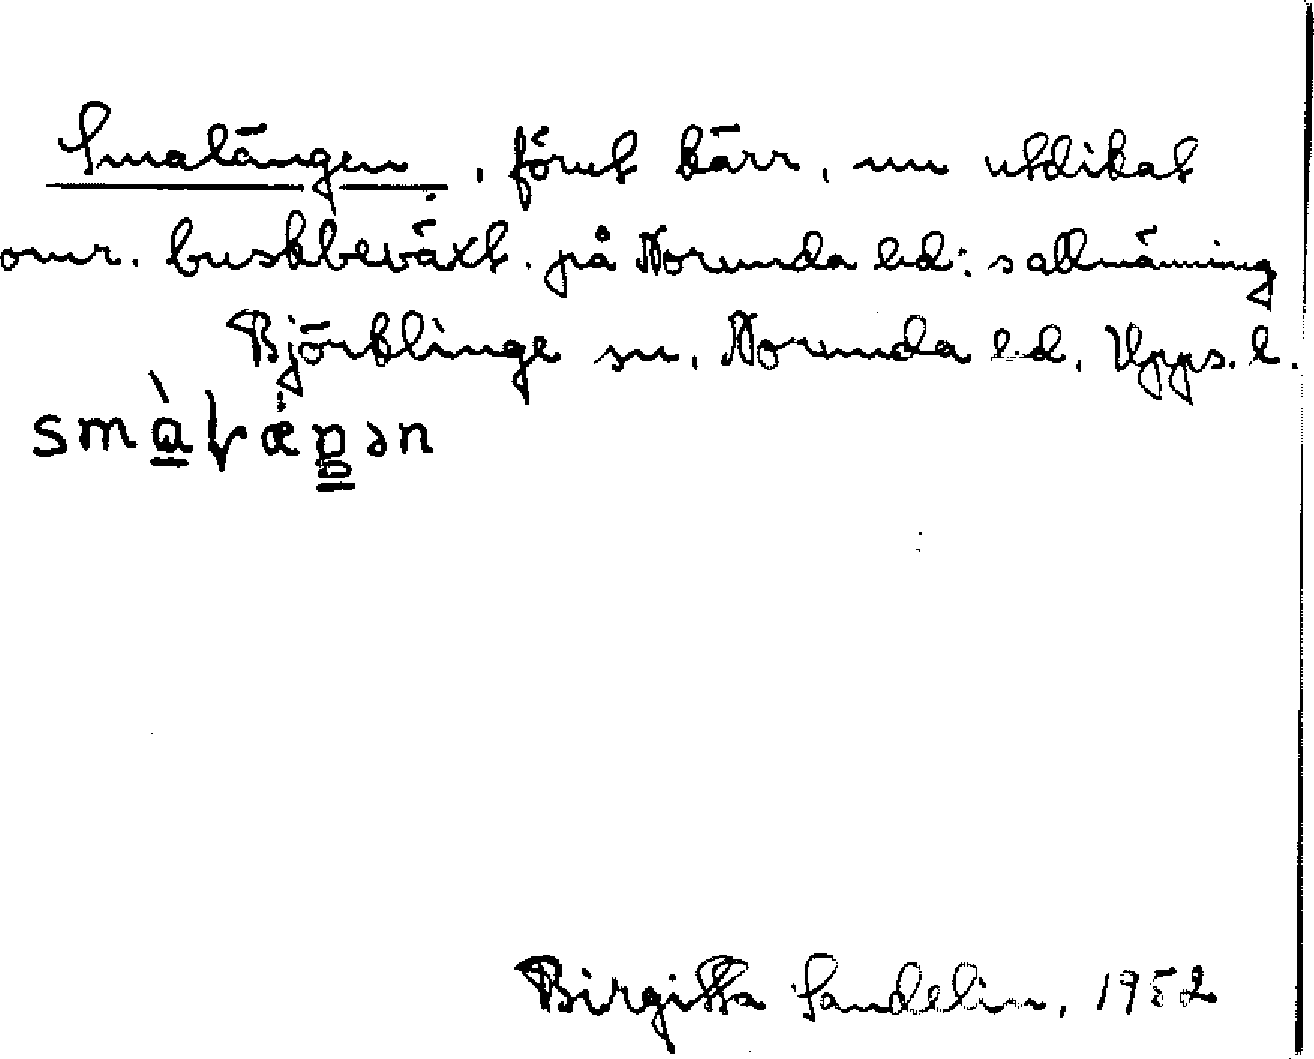 Smalängen, förut kärr, nu utdikat
omr. buskbeväxt. på Norunda hd:s allmänning
Björklinge sn, Norunda hd, Upps. l.
Birgitta Sandelin, 1952